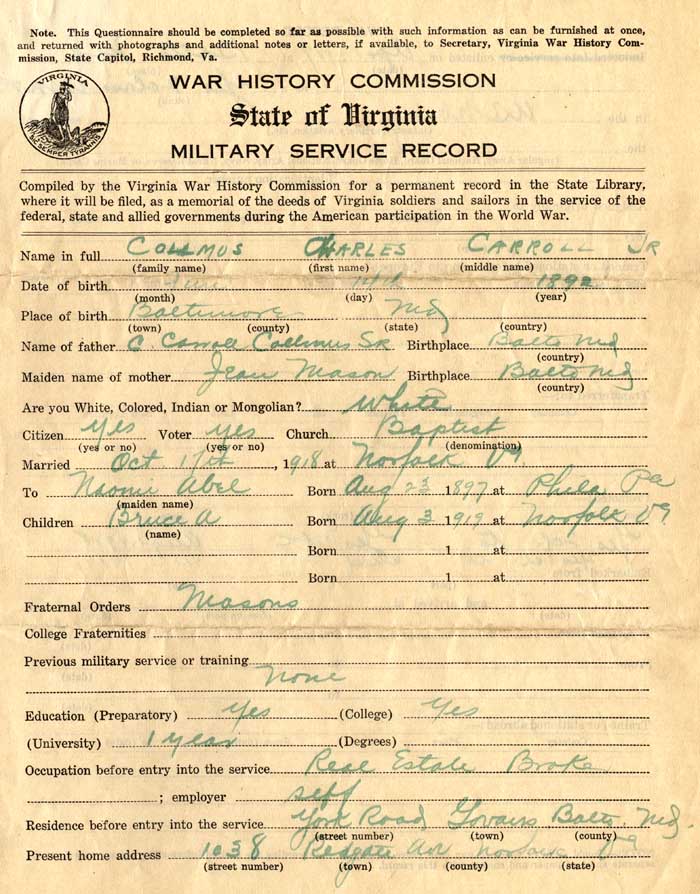 Note. This Questionnaire should be completed so far as possible with such information as can be furnished at once,
and returned with photographs and additional notes or letters, if available, to Secretary, Virginia War History Com-
mission, State Capitol, Richmond, Va.
VIRGINIA
SIC SEMPER TYRANNIS
WAR HISTORY COMMISSION
State of Virginia
MILITARY SERVICE RECORD
Compiled by the Virginia War History Commission for a permanent record in the State Library,
where it will be filed, as a memorial of the deeds of Virginia soldiers and sailors in the service of the
federal, state and allied governments during the American participation in the World War.
Name in full COLLMUS CHARLES CARROLL JR
(family name) (first name) (middle name)
Date of birth 14th 1892
(month) (day) (year)
Place of birth Baltimore Md
(town) (county) (state) (country)
Name of father C. Carroll Collmus Sr Birthplace Balto Md
(country)
Maiden name of mother Jean Mason Birthplace Balto Md
(country)
Are you White, Colored, Indian or Mongolian? White
Citizen Yes Voter yes Church Baptist
(yes or no) (yes or no) (denomination)
Married Oct 17th, 1918 at Norfolk Va.
To Naomi Abel Born Aug 23 1897 at Phila Pa
(maiden name)
Children Bruce A Born Aug 3 1919 at Norfolk Va
(name)
Born 1 at
Born 1 at
Fraternal Orders Masons
College Fraternities
Previous military service or training
None
Education (Preparatory) Yes (College) Yes
(University) 1 year (Degrees)
Occupation before entry into the service Real Estate Broke
; employer self
Residence before entry into the service York Road Govans Balto. Md.
(street number) (town) (county)
Present home address 1038 Redgate Ave Norfolk Va
(street number) (town) (county) (state)